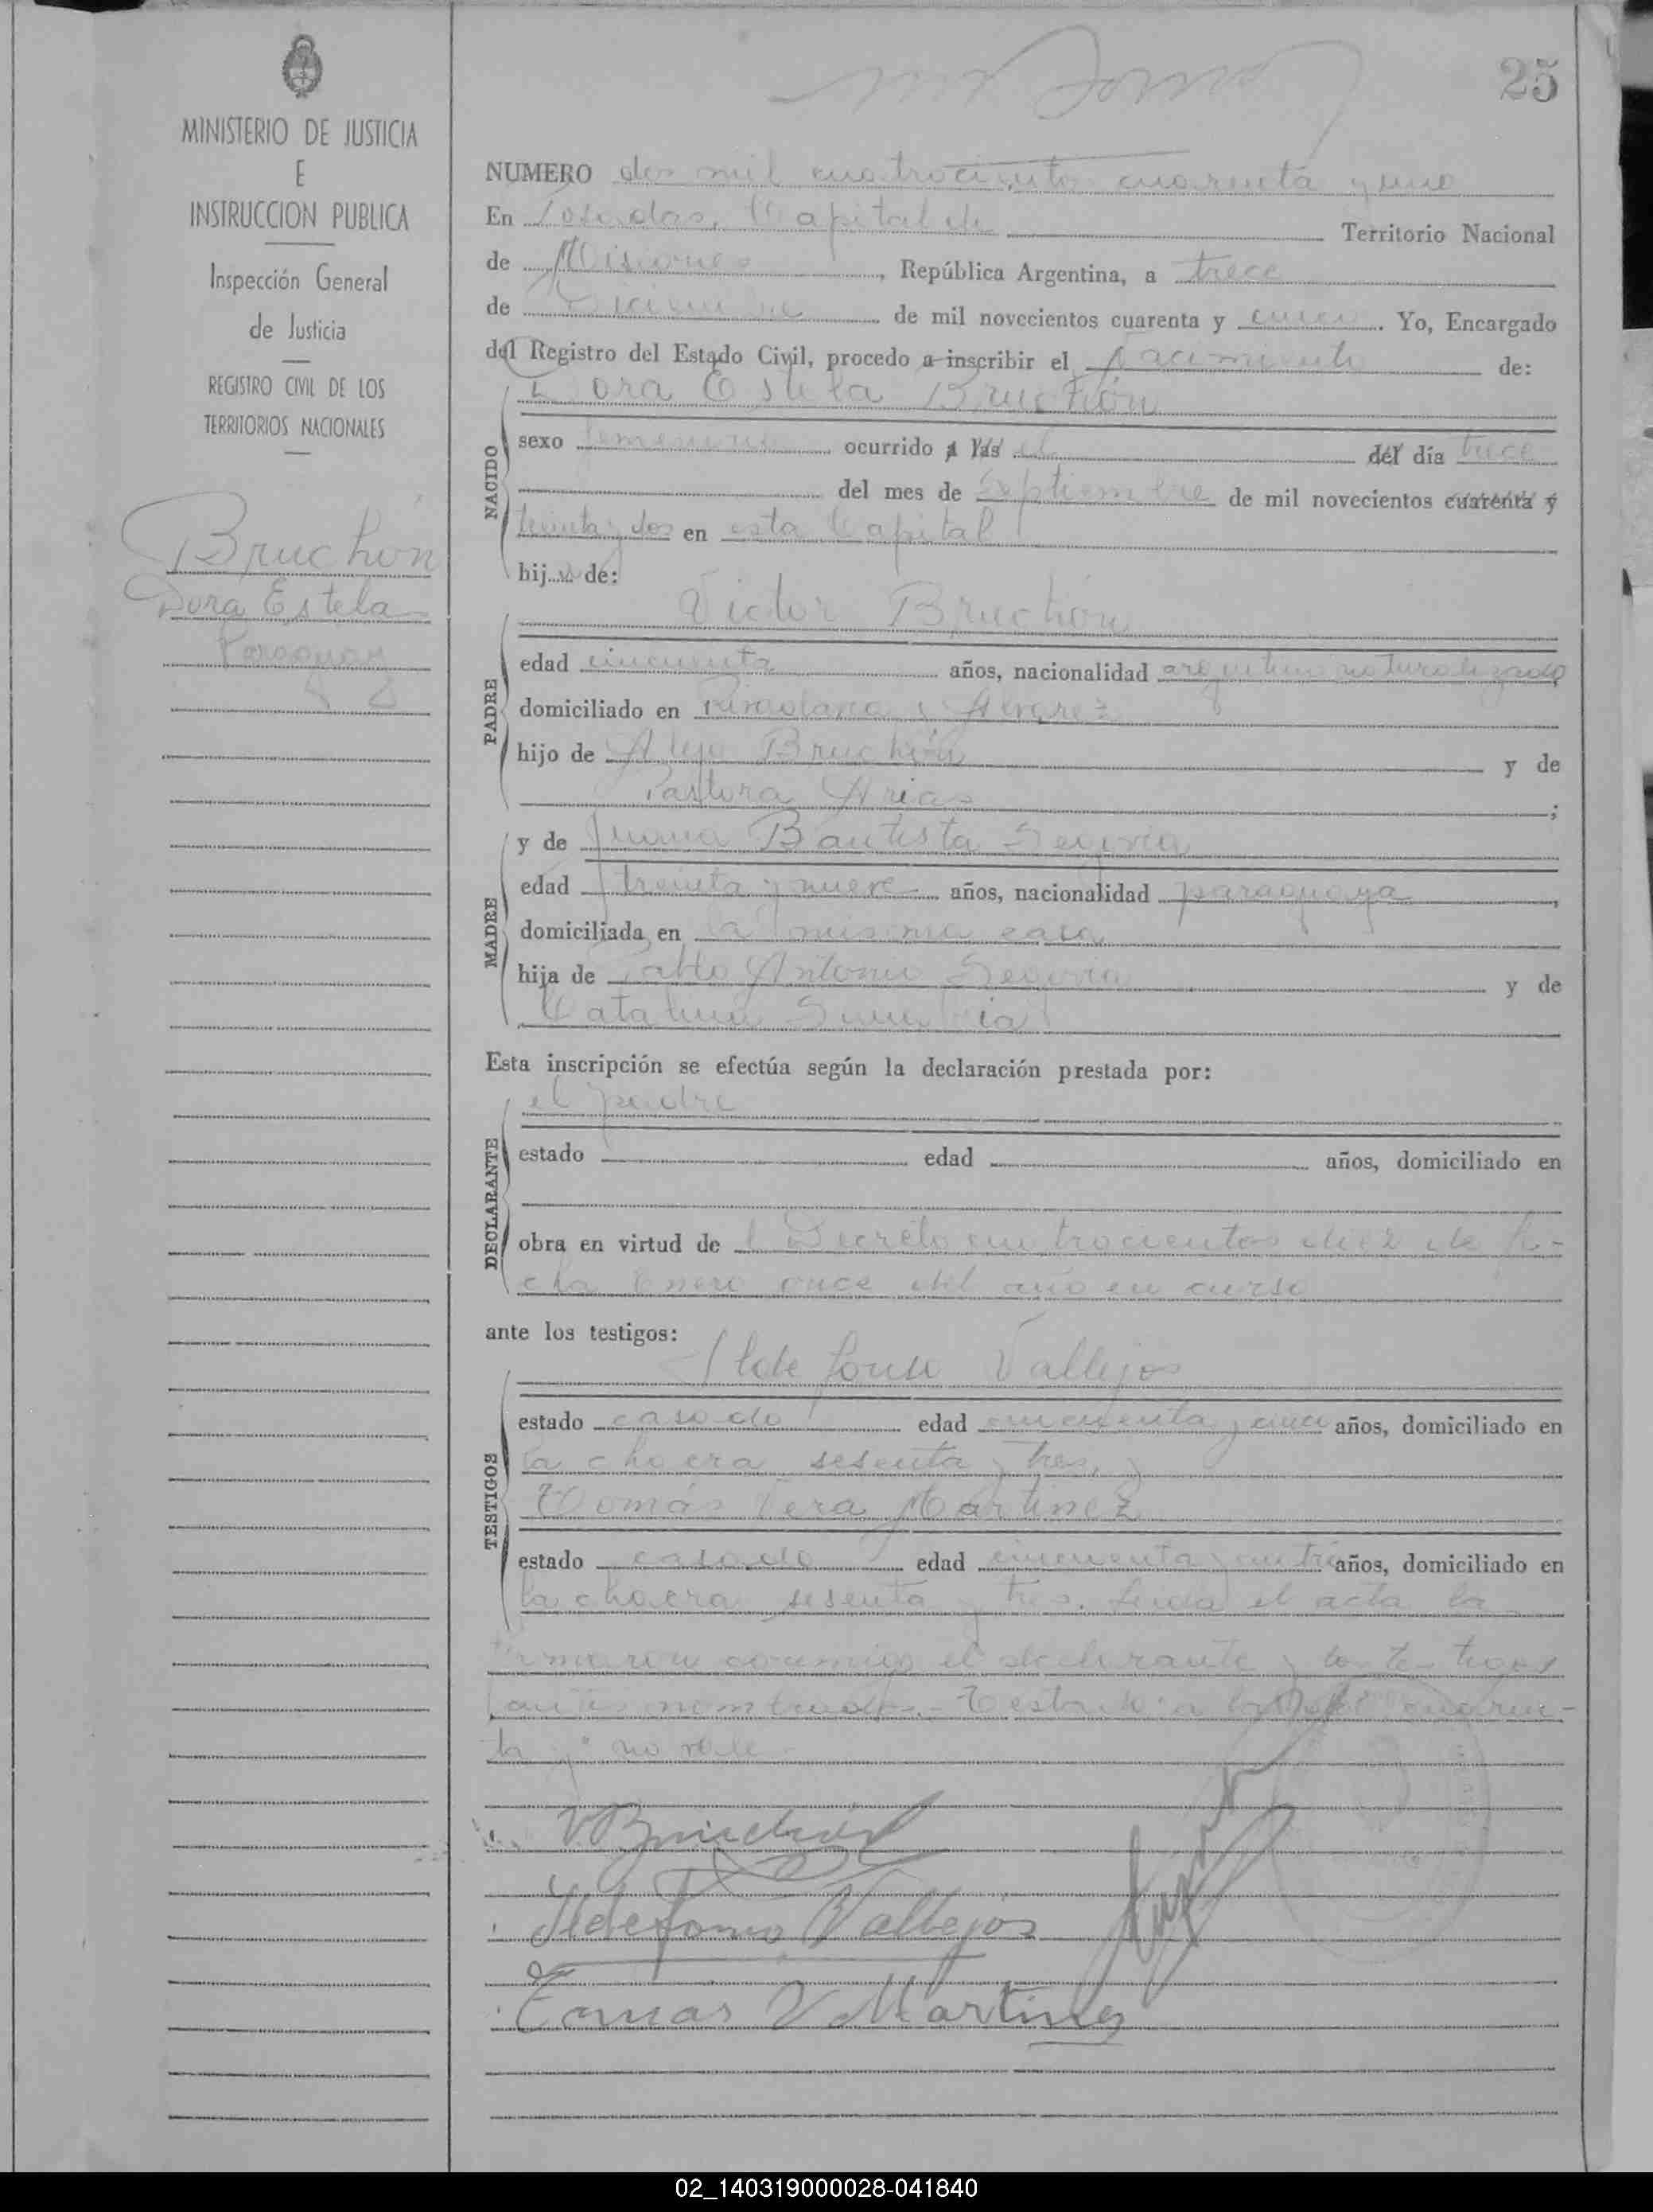 25
MINISTERIO DE JUSTICIA
E
INSTRUCCION PUBLICA
Inspección General
de Justicia
REGISTRO CIVIL DE LOS
TERRITORIOS NACIONALES
Bruchón
Dora Estela
Paraguay
NUMERO dos mil cuatrocientos cuarenta y uno
En Posadas, Capital de Territorio Nacional
de Misiones, República Argentina, a trece
de Diciembre de mil novecientos cuarenta y cinco. Yo, Encargado
del Registro del Estado Civil, procedo a inscribir el nacimiento de:
Dora Estela Bruchón
NACIDO
sexo femenino ocurrido a las el del día trece
del mes de Septiembre de mil novecientos cuarenta y
treinta y dos en esta Capital
hija de:
Victor Bruchón
PADRE
edad cincuenta años, nacionalidad argentino naturalizado
domiciliado en Rivadavia y Alvarez
hijo de Alejo Bruchón y de
Pastora Arias;
MADRE
y de Juana Bautista Segovia
edad treinta y nueve años, nacionalidad paraguaya,
domiciliada en la misma casa
hija de Pablo Antonio Segovia y de
Catalina
Esta inscripción se efectúa según la declaración prestada por:
el padre
DECLARANTE
estado edad años, domiciliado en
obra en virtud del Decreto cuatrocientos diez de fe-
cha Enero once del año en curso
ante los testigos:
Ildefonso Vallejos
TESTIGOS
estado casado edad cincuenta y cinco años, domiciliado en
la chacra sesenta y tres, y
Tomás Vera Martinez
estado casado edad cincuenta y cuatro años, domiciliado en
la chacra sesenta y tres. Leida el acta la
firmaron conmigo el declarante y los testigos
antes nombrados.- Testado: a las del cuaren-
ta y: no vale.-
V Bruchón
Ildefonso Vallejos
Tomas V Martinez
02_140319000028-041840